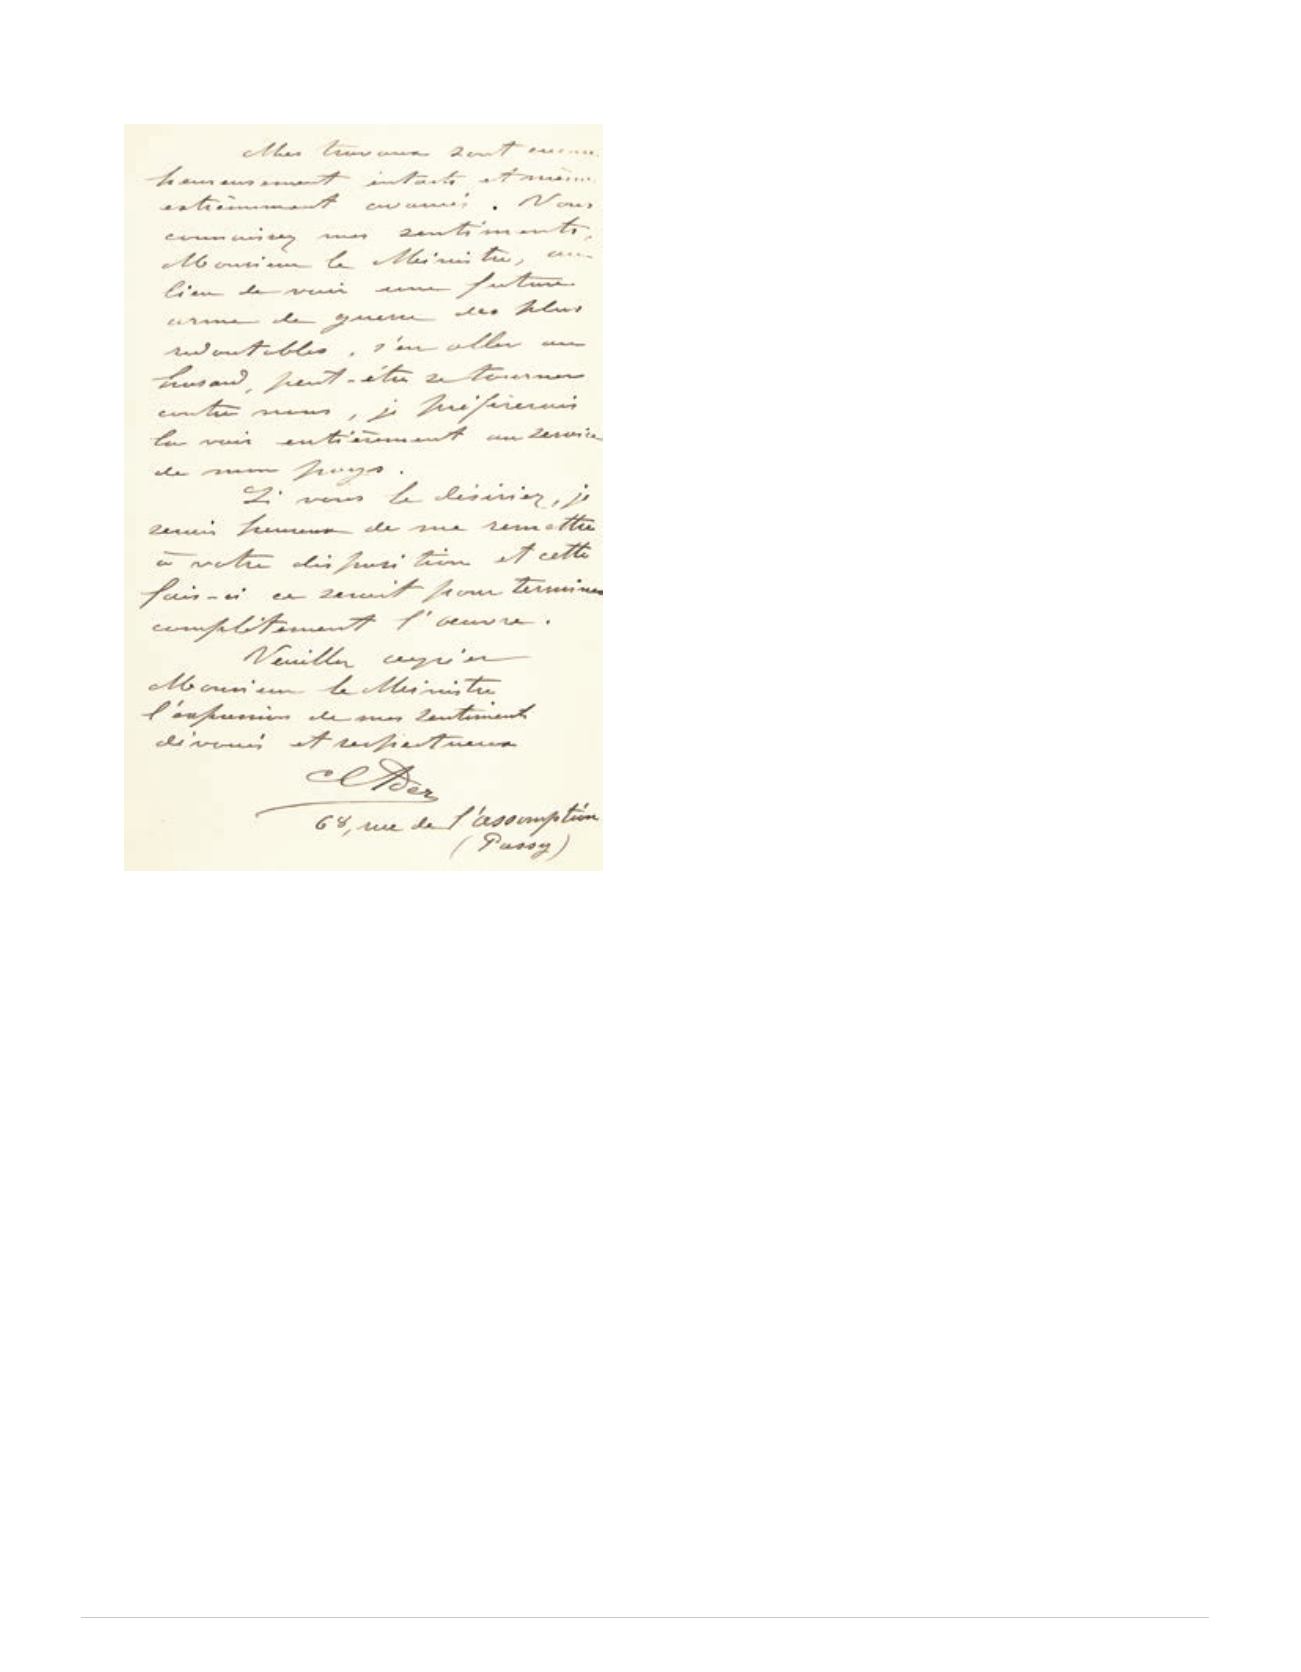 Mes travaux sont encore
heureusement intacts et même
extrêmement avancés. Vous
connaissez mes sentiments,
Monsieur le Ministre, au
lieu de voir une future
arme de guerre des plus
redoutables, s'en aller au
hasard, peut-être se tourner
contre nous, je préfèrerais
la voir entièrement au service
de mon pays.
Si vous le désiriez, je
serais heureux de me remettre
à votre disposition et cette
fois-ci ce serait pour terminer
complètement l'œuvre.
Veuillez agréer
Monsieur le Ministre
l'expression de mes sentiments
dévoués et respectueux
C Ader
68, rue de l'assomption
(Passy)